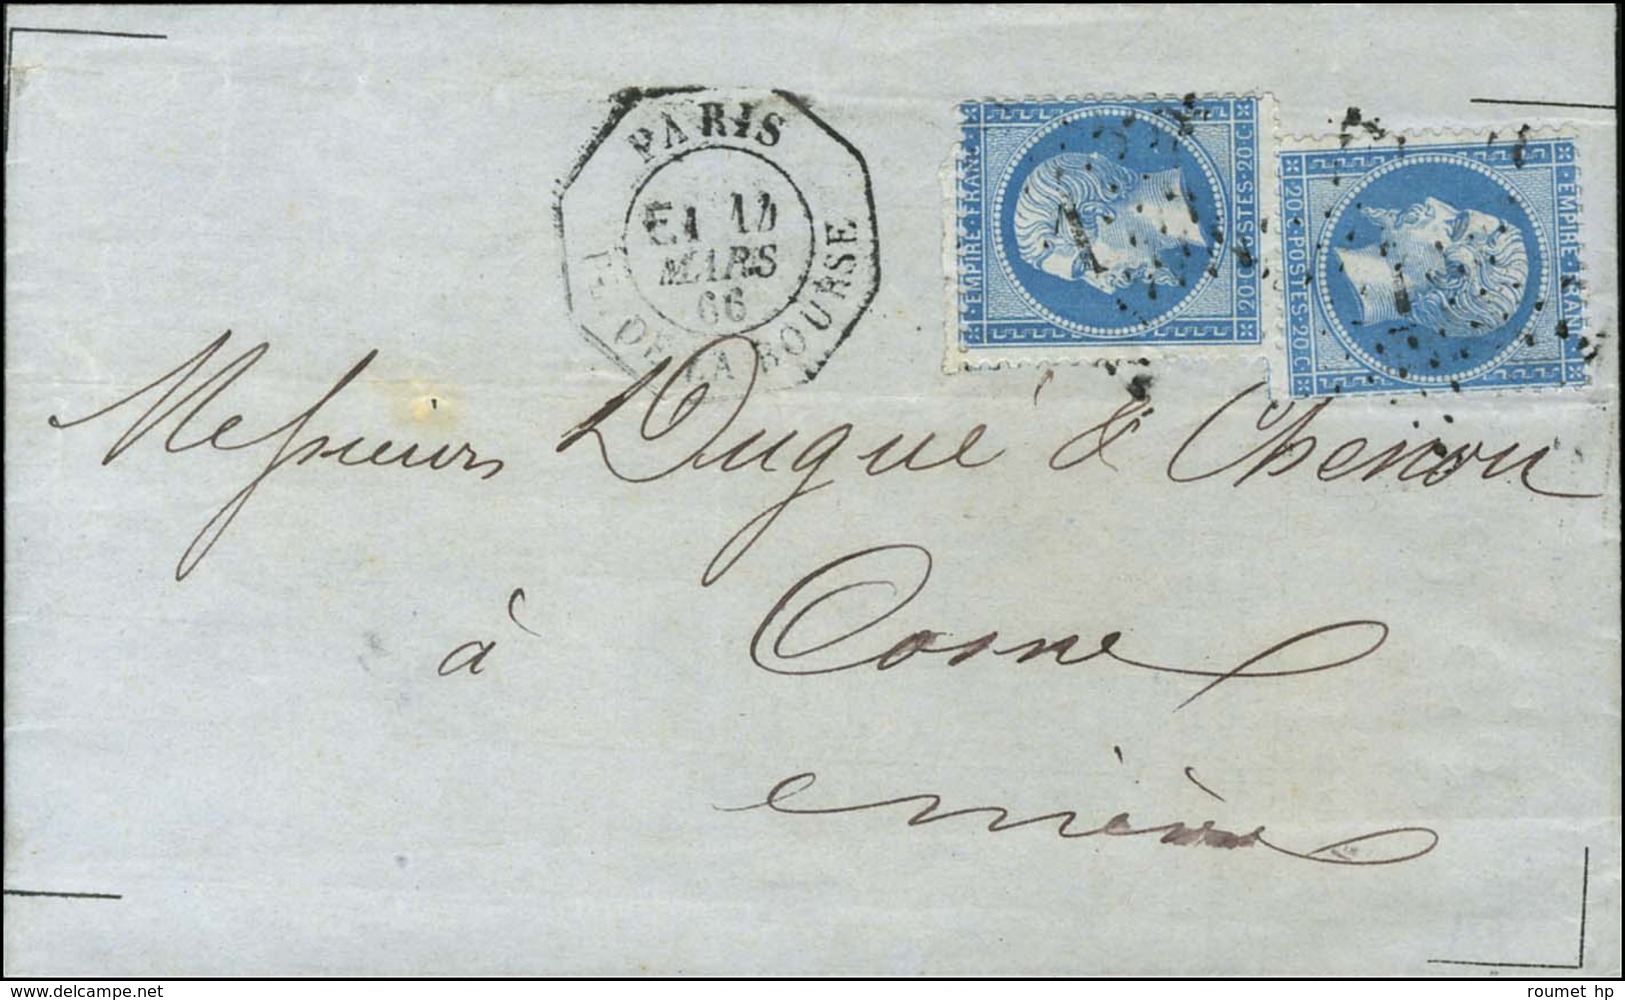 PARIS
E1 14
MARS
66
PL. DE LA BOURSE
EMPIRE · FRANC ·
20·C POSTES·20·C
EMPIRE FRANC
20·C POSTES·20·C
1
1
Messieurs Dugué & Chenou
à Cosne
www.delcampe.net
roumet hp